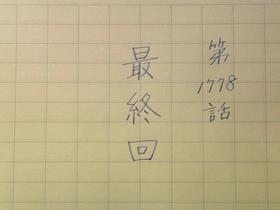 第1778話
最終回